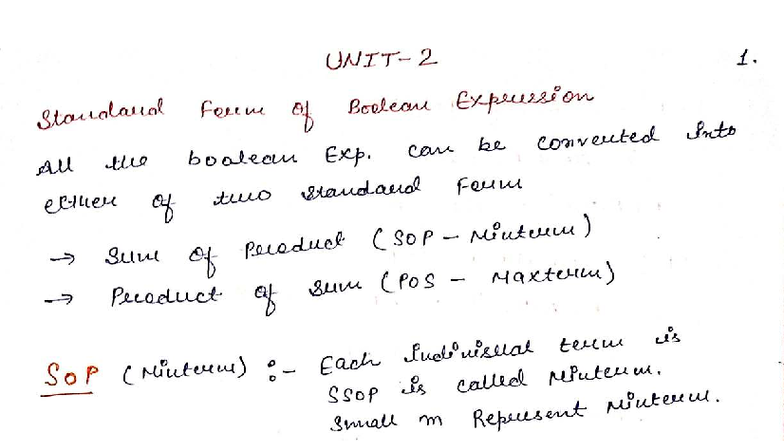 UNIT-2
1.
Standard Form of Boolean Expression
All the boolean Exp. can be converted into
either of two standard Form
→ Sum of Product (SOP - Minterm)
→ Product of sum (POS - Maxterm)
SOP (Minterm) :- Each Indivisual term is
SSOP is called Minterm.
Small m Represent Minterm.